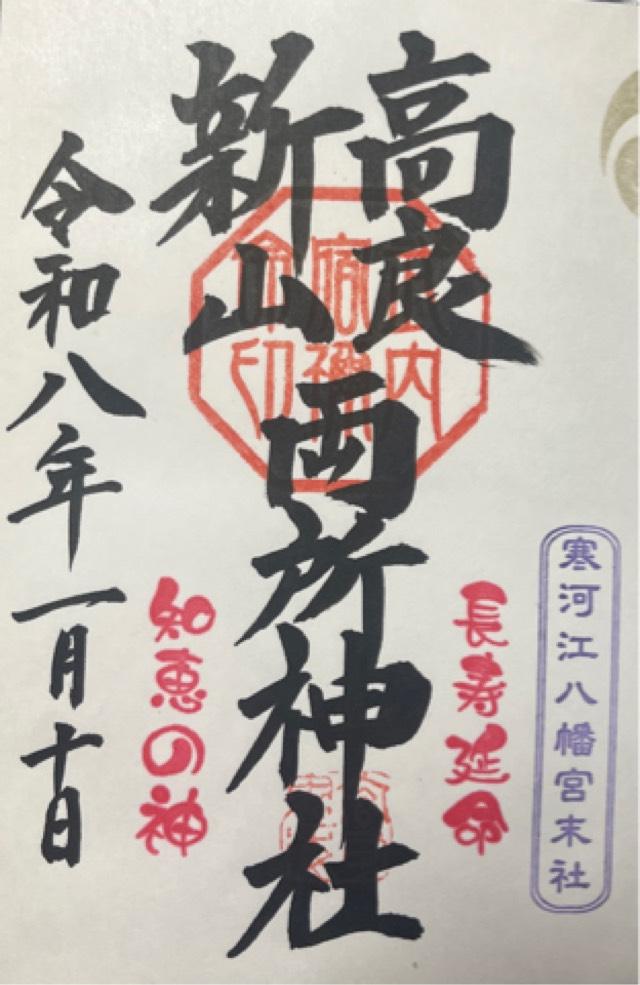 寒河江八幡宮末社
長寿延命
高良
新山
両所神社
知恵の神
令和八年一月十日